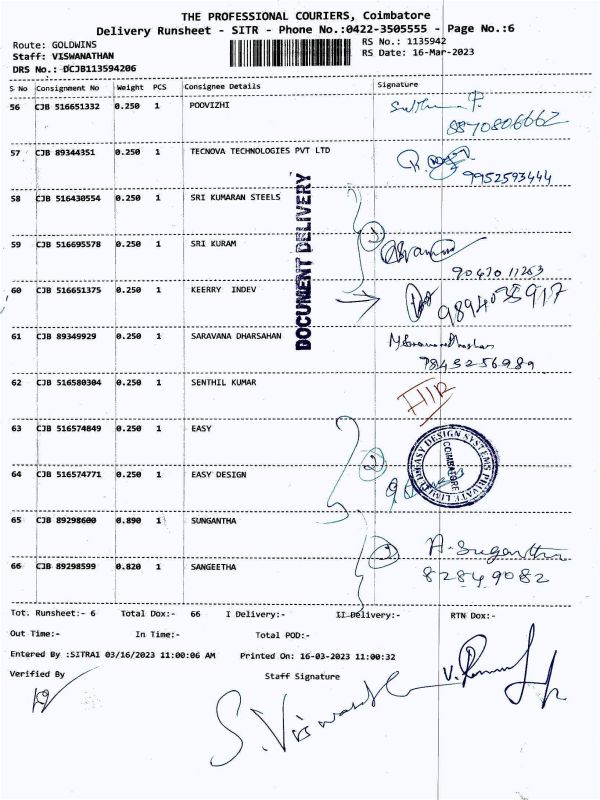 THE PROFESSIONAL COURIERS, Coimbatore
Delivery Runsheet - SITR - Phone No.:0422-3505555 - Page No.:6
Route: GOLDWINS RS No.: 1135942
Staff: VISWANATHAN RS Date: 16-Mar-2023
DRS No.: DCJB113594206
S No Consignment No Weight PCS Consignee Details Signature
56 CJB 516651332 0.250 1 POOVIZHI
8870806662
57 CJB 89344351 0.250 1 TECNOVA TECHNOLOGIES PVT LTD
9952593444
58 CJB 516430554 0.250 1 SRI KUMARAN STEELS
DOCUMENT DELIVERY
59 CJB 516695578 0.250 1 SRI KURAM
60 CJB 516651375 0.250 1 KEERRY INDEV
9894035917
61 CJB 89349929 0.250 1 SARAVANA DHARSAHAN
62 CJB 516580304 0.250 1 SENTHIL KUMAR
63 CJB 516574849 0.250 1 EASY
EASY DESIGN SYSTEMS PRIVATE LIMITED
COIMBATORE
64 CJB 516574771 0.250 1 EASY DESIGN
2
65 CJB 89298600 0.890 1 SUNGANTHA
A. Sugantha
66 CJB 89298599 0.820 1 SANGEETHA
82849082
Tot. Runsheet:- 6 Total Dox:- 66 I Delivery:- II Delivery:- RTN Dox:-
Out Time:- In Time:- Total POD:-
Entered By :SITRA1 03/16/2023 11:00:06 AM Printed On: 16-03-2023 11:00:32
Verified By Staff Signature
S. Viswanath